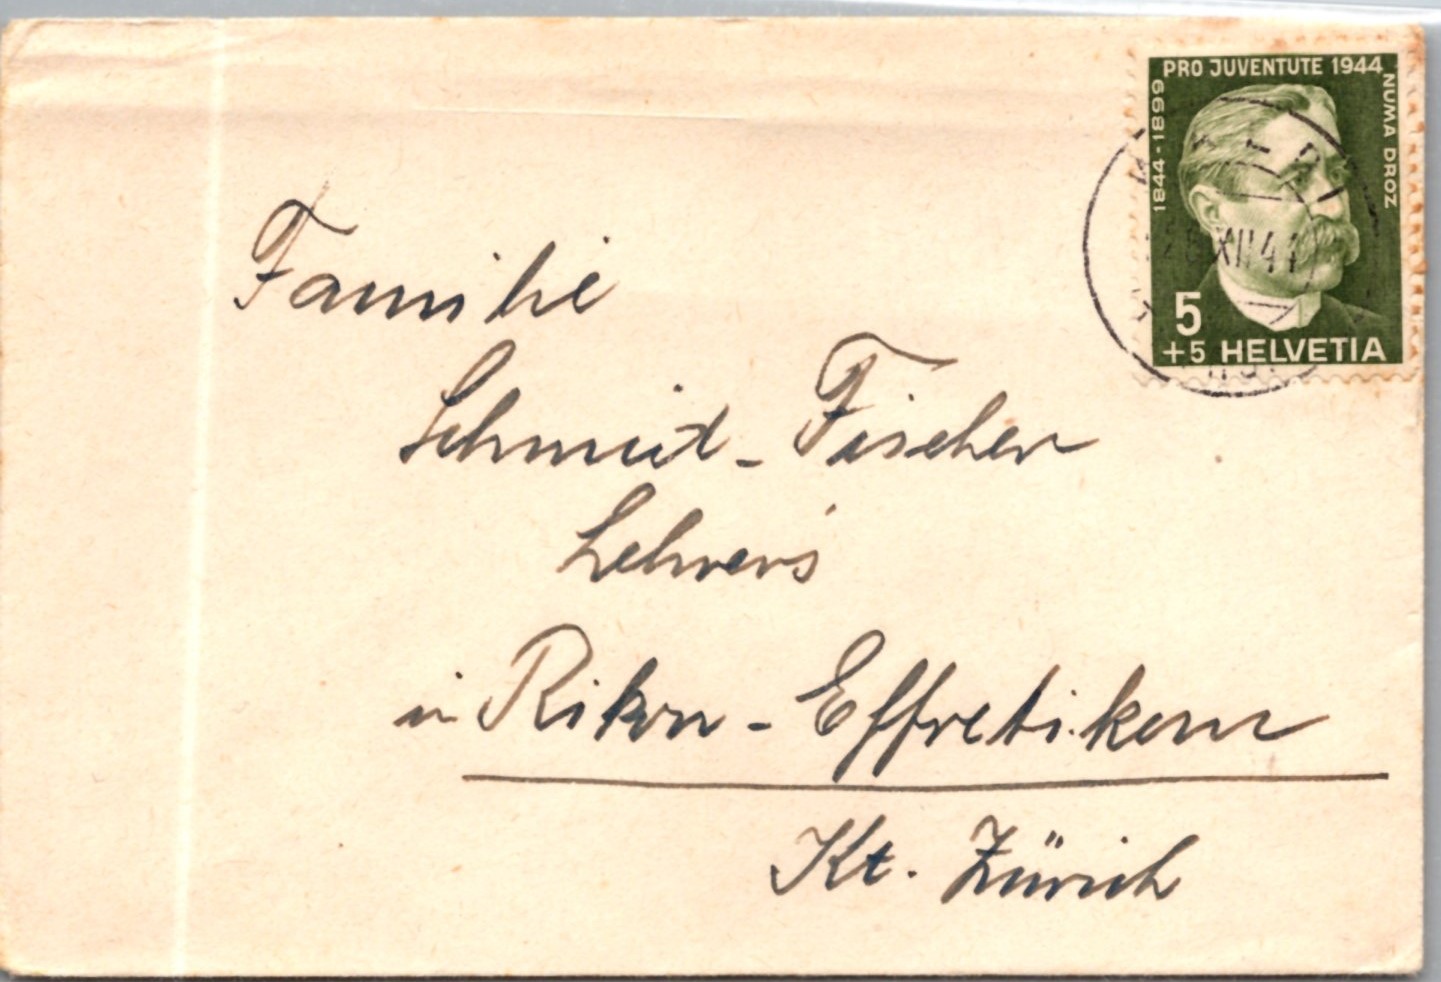 PRO JUVENTUTE 1944
1844-1899
NUMA DROZ
XII 44
5
+5 HELVETIA
Familie
Schmid-Fischer
Lehrers
in Rikon-Effretikon
Kt. Zürich